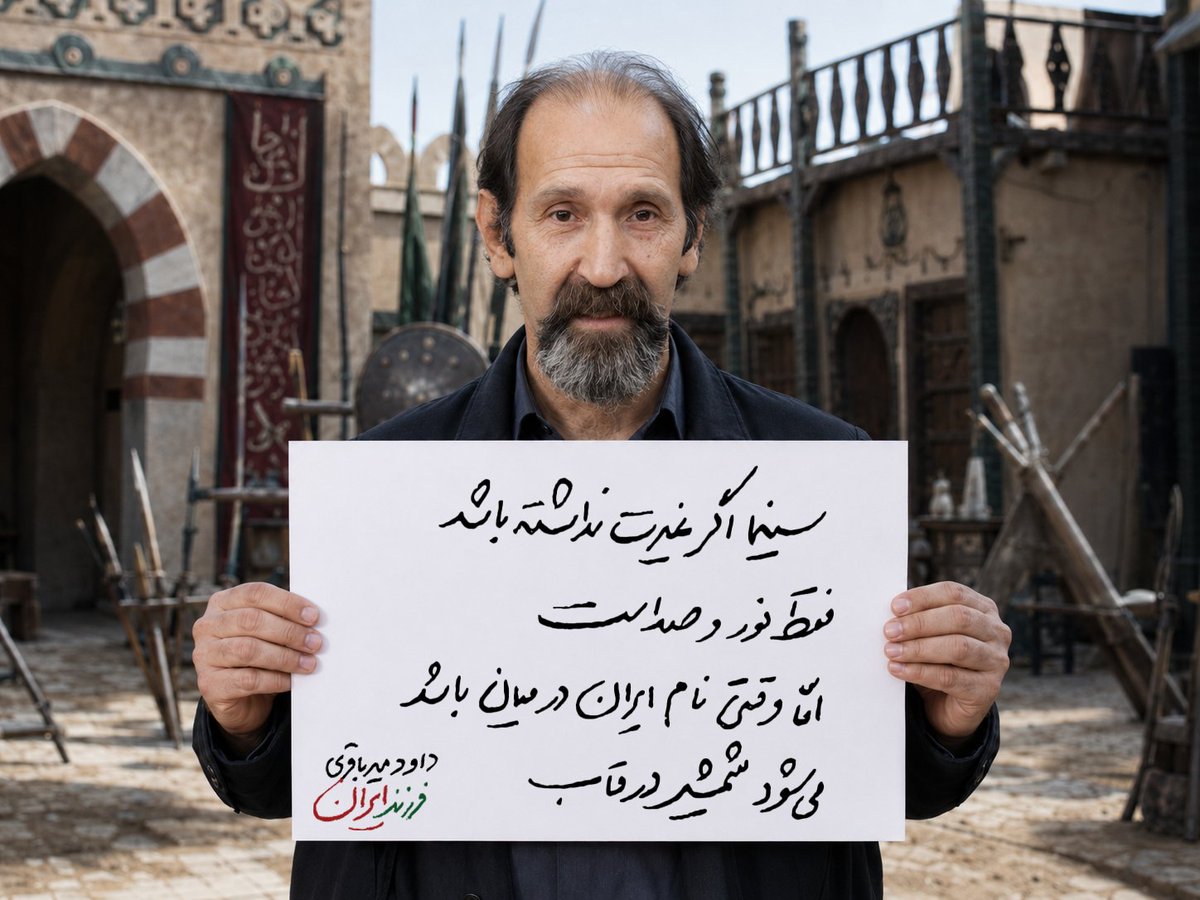 سینما اگر غیرت نداشته باشد
فقط نور و صداست
امّا وقتی نام ایران در میان باشد
می‌شود شمشیر در قاب
داود میرباقری
فرزند ایران